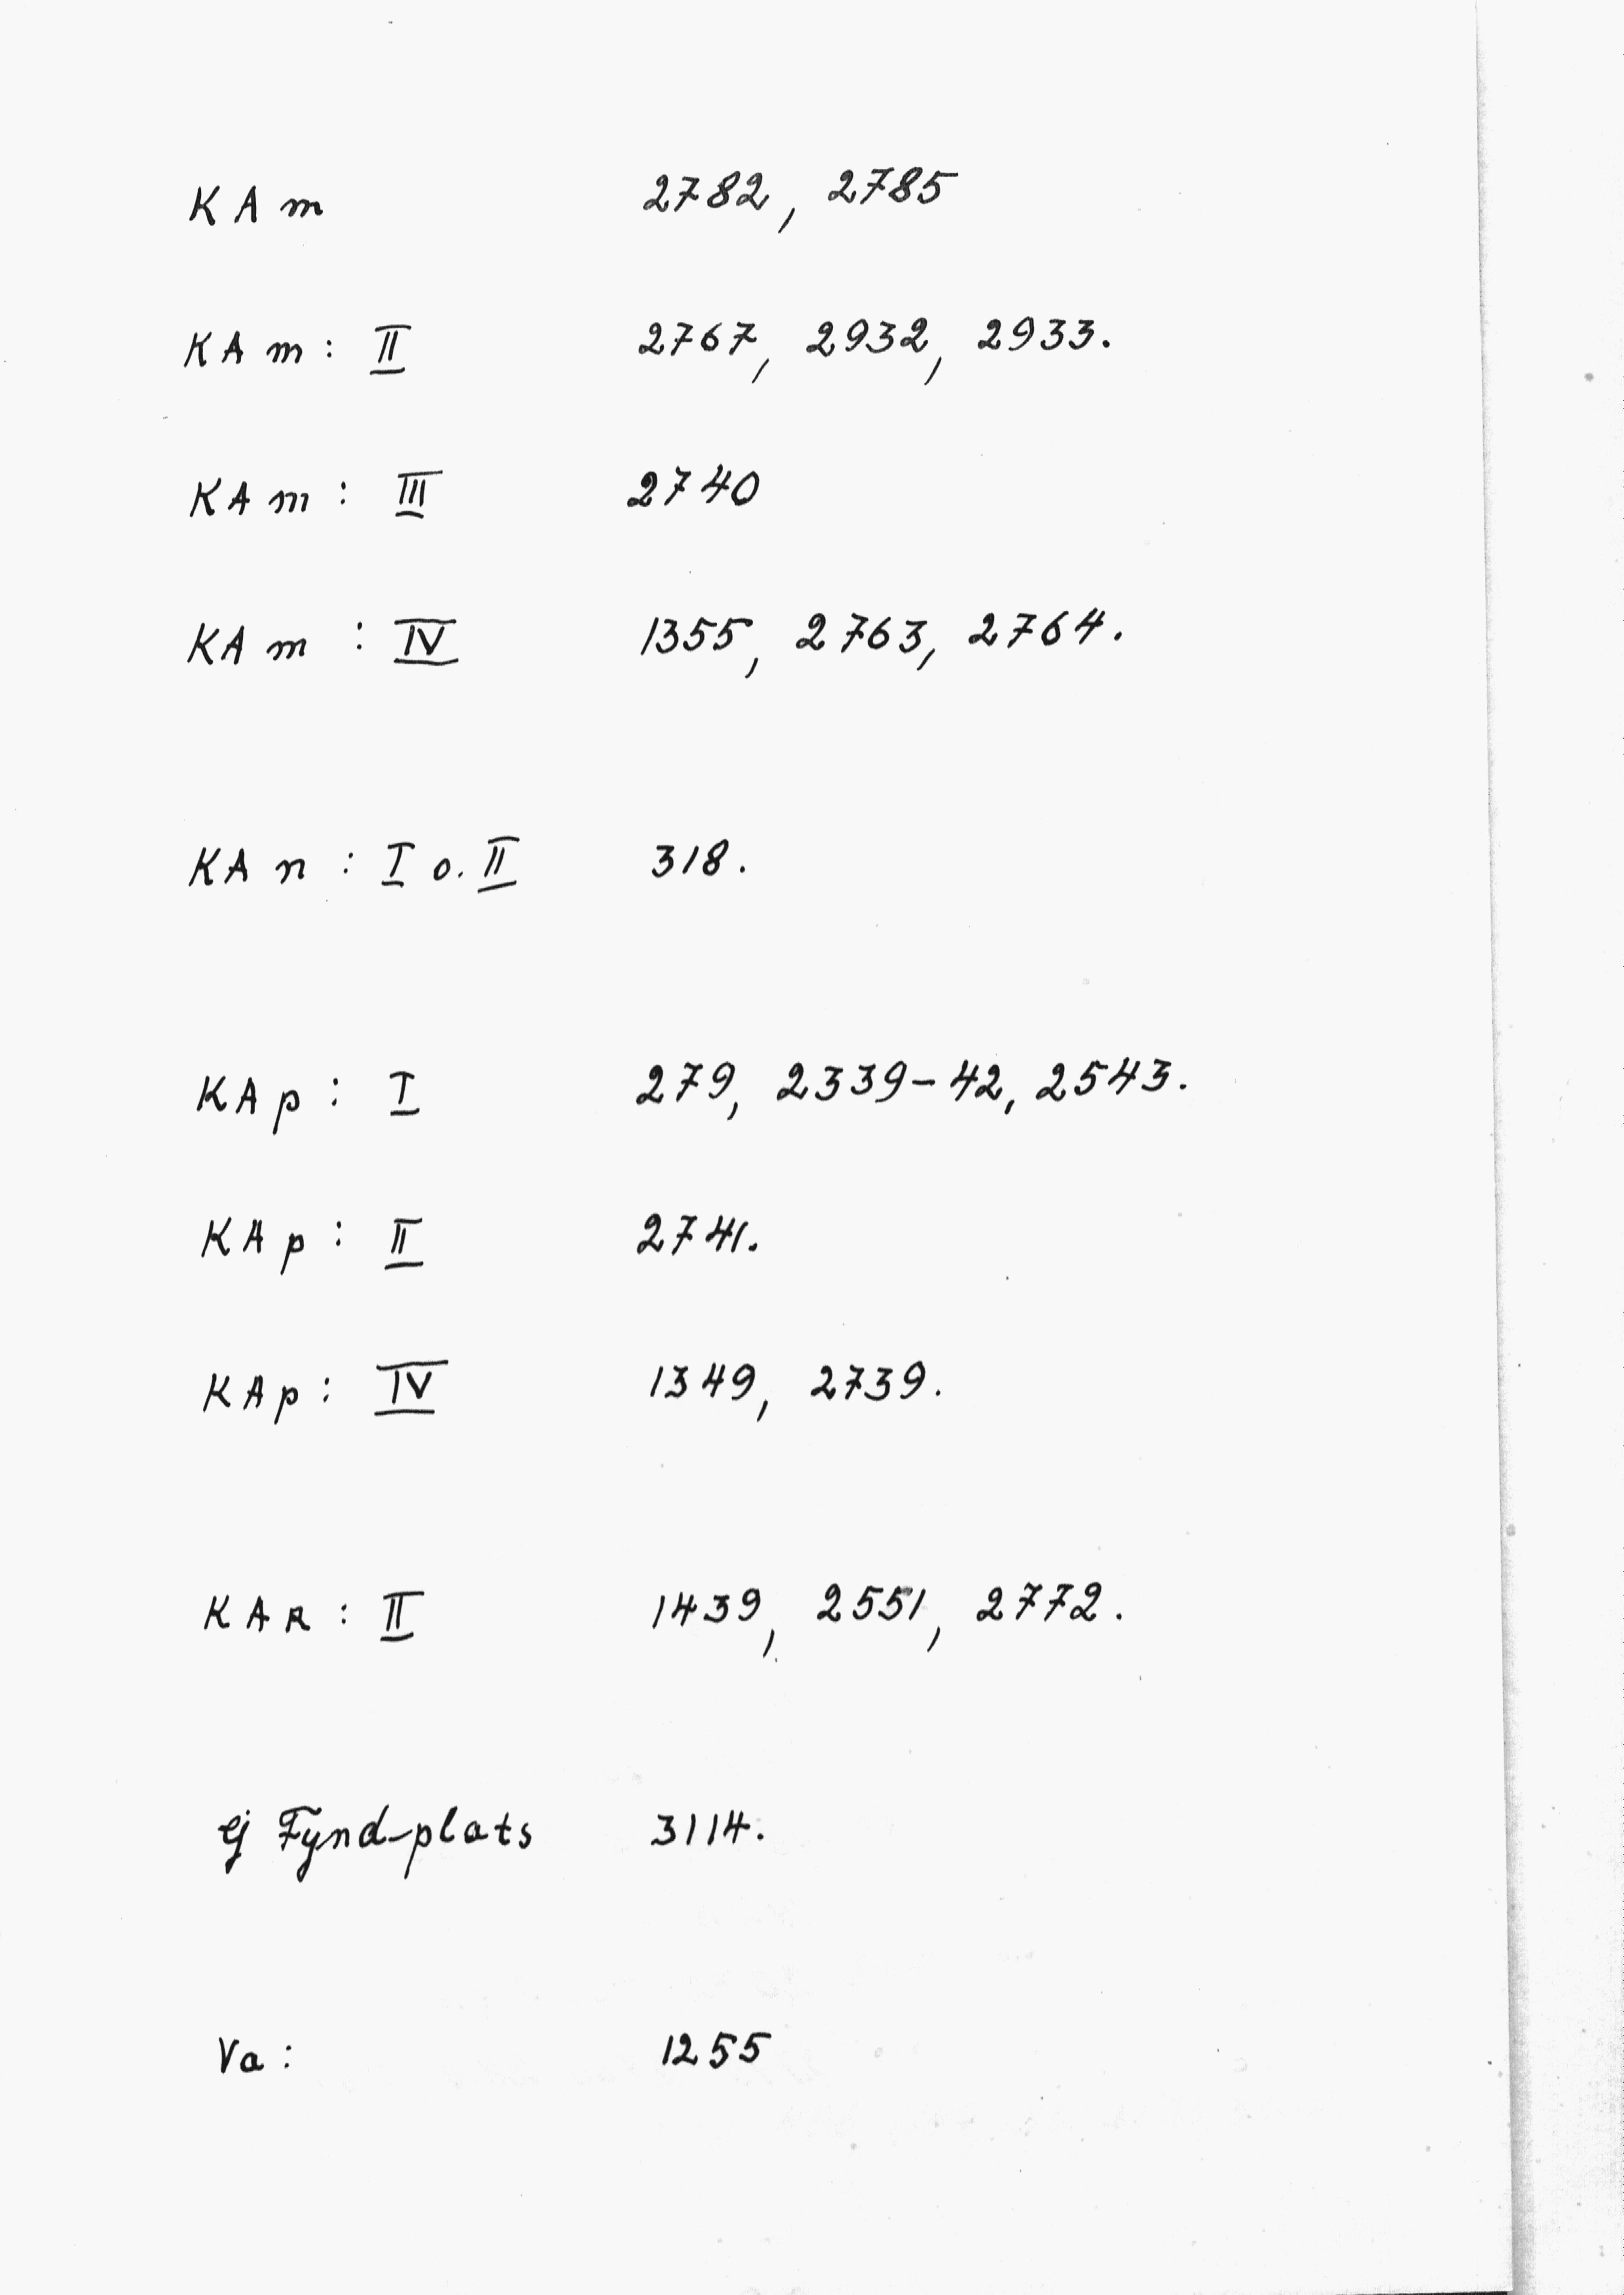 KAm 2782, 2785
KAm: II 2767, 2932, 2933.
KAm: III 2740
KAm: IV 1355, 2763, 2764.
KAn: I o. II 318.
KAp: I 279, 2339-42, 2543.
KAp: II 2741.
KAp: IV 1349, 2739.
KAR: II 1439, 2551, 2772.
Ej Fynd-plats 3114.
Va: 1255